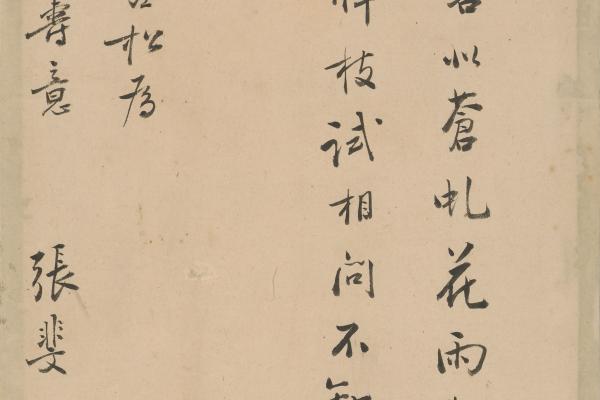 似蒼虬花雨
枝試相問不知
松為
壽意
張斐